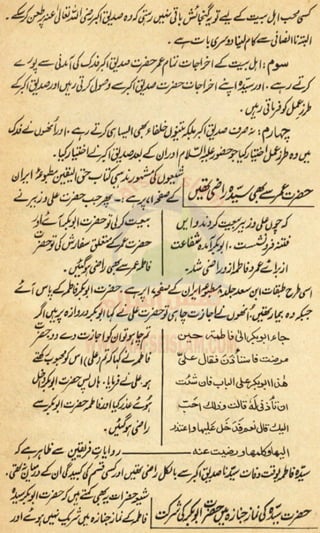 کسی محب اہل بیت کے لیے تو یہ گنجائش باقی نہیں رہتی کہ وہ صدیق اکبر رضی اللہ تعالیٰ عنہ پر طعن کر سکے۔
البتہ ناانصافی سے کام لینا دوسری بات ہے۔
سوم: اہل بیت کے اخراجات تمام عمر حضرت صدیق اکبر فدک کی آمدنی سے پورے
کرتے رہے۔ اور سیدہ اپنے اخراجات حضرت صدیق اکبر سے وصول کرتی رہیں اور صدیق اکبر کے
طرز عمل کو فرماتی رہیں۔
چہارم: نہ صرف صدیق اکبر بلکہ تینوں خلفاء بھی ایسا ہی کرتے رہے۔ اور انھوں نے فدک
میں وہ طرز عمل اختیار کیا جو حضور علیہ السلام اور ان کے بعد صدیق اکبر نے اختیار کیا۔
حضرت عمر سے بھی سیدہ راضی تھیں
شیعوں کی مشہور مذہبی کتاب حق الیقین مطبوعہ ایران
کے صفحہ پر ہے۔ پھر جب حضرت علی و زبیر نے
بیعت کر لی تو حضرت ابوبکر آئے اور
حضرت عمر کے متعلق سفارش کی تو حضرت
فاطمہ عمر سے بھی راضی ہو گئیں۔
کہ چوں علی و زبیر بیعت کردند و ایں
فتنہ فرو نشست۔ ابوبکر آمد و شفاعت
از برائے عمر و فاطمہ از و راضی شد۔
اسی طرح طبقات ابن سعد جلد مطبوعہ ایران کے صفحہ پر ہے۔ حضرت ابوبکر فاطمہ کے پاس آئے
جبکہ وہ بیمار تھیں انھوں نے اجازت چاہی تو حضرت علی نے کہا ابوبکر دروازہ پر ہیں اگر
تم چاہو تو ان کو اجازت دے دو۔ حضرت
فاطمہ نے کہا کہ تم (علی) اس کو محبوب رکھتے
ہو علی نے فرمایا۔ ہاں پس حضرت ابوبکر داخل
ہوئے عذر کیا اور فاطمہ حضرت ابوبکر سے
راضی ہو گئیں۔
جاء ابوبکر الی فاطمة حین
مرضت فاستاذن فقال علی
ھذا ابوبکر علی الباب فان شئت
ان تاذنی لہ قالت وذلک احب
الیک قال نعم فدخل علیھا واعتذر
الیھا وکلمھا ورضیت عنہ
روایات فریقین سے ظاہر ہے کہ
سیدہ فاطمہ بوقت وفات سیدنا صدیق اکبر سے بالکل راضی تھیں اور کسی قسم کی کبیدگی ان کے درمیان نہ تھی۔
حضرت سیدہ کی نماز جنازہ میں حضرت ابوبکر کی شرکت
شیعہ حضرات یہ بھی کہتے ہیں کہ حضرت ابوبکر سیدہ
فاطمہ کے نماز جنازہ میں شریک نہیں ہوئے اور